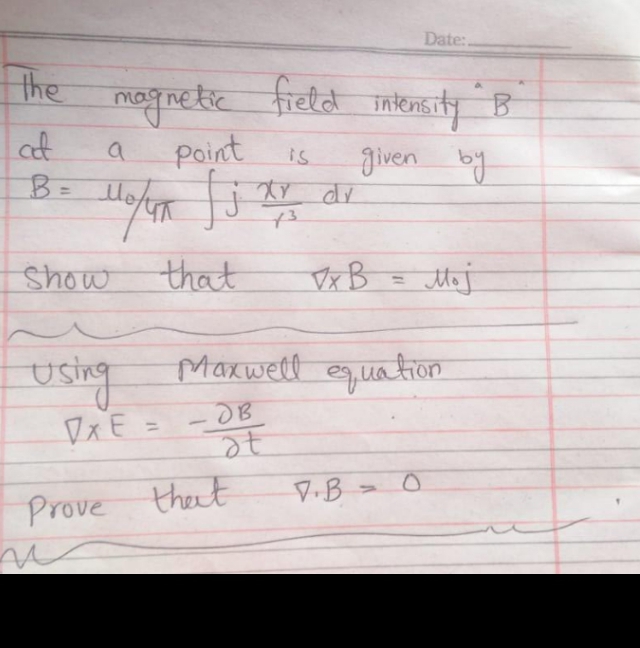 Date:
The magnetic field intensity "B"
at a point is given by
B = μ₀/4π ∫ j xr/r³ dv
show that ∇xB = μ₀j
Using Maxwell equation
∇xE = -∂B/∂t
Prove that ∇.B = 0